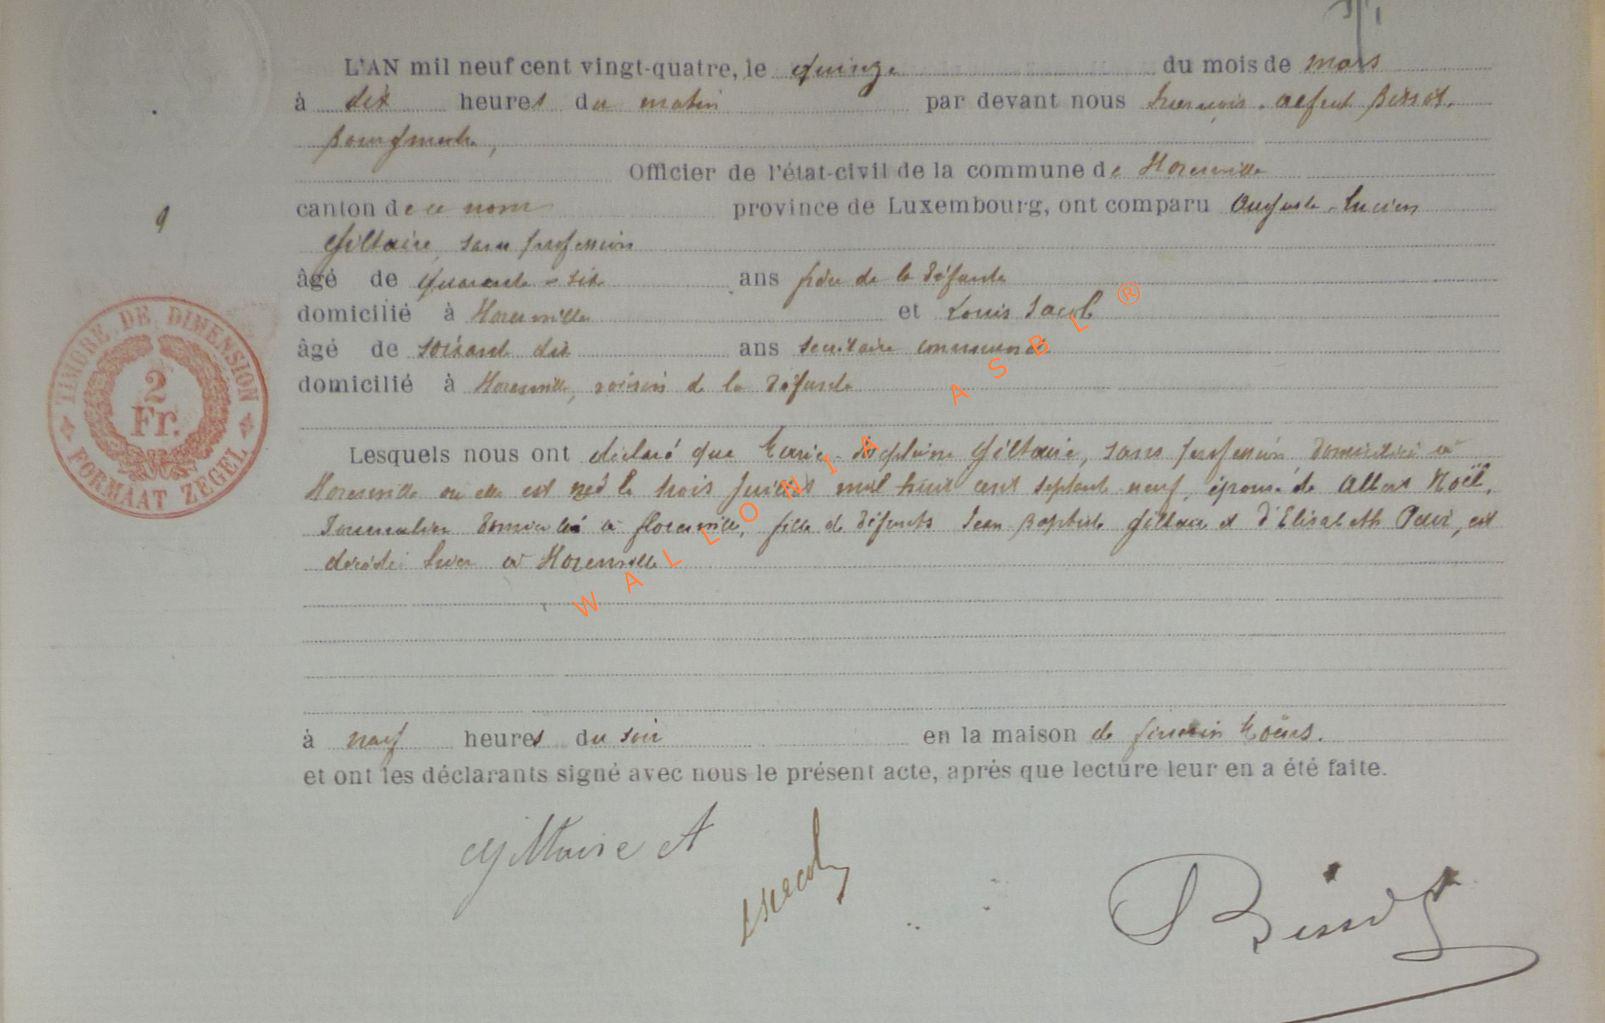 L'AN mil neuf cent vingt-quatre, le quinze du mois de mars
à dix heures du matin par devant nous François-Alfred Bissot,
Bourgmestre,
Officier de l'état-civil de la commune de Florenville
canton de ce nom province de Luxembourg, ont comparu Auguste-Lucien
Giltaire, sans profession
âgé de quarante-six ans frère de la défunte
domicilié à Florenville et Louis Jacob
âgé de soixante dix ans secrétaire communal
domicilié à Florenville, voisin de la défunte
Lesquels nous ont déclaré que Marie-Joséphine Giltaire, sans profession domiciliée à
Florenville où elle est née le trois juillet mil huit cent septante neuf, épouse de Albert Noël,
Journalier domicilié à Florenville, fille de défunts Jean Baptiste Giltaire et d'Elisabeth, est
décédée hier à Florenville
à neuf heures du soir en la maison de Firmin
et ont les déclarants signé avec nous le présent acte, après que lecture leur en a été faite.
Giltaire A
LJacob
Bissot
9
TIMBRE DE DIMENSION
2
Fr.
FORMAAT ZEGEL
WALLONIA ASBL ®